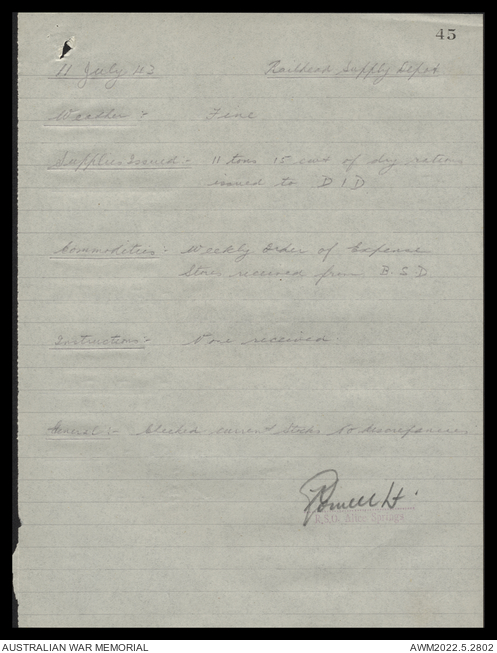 45
11 July 43 Railhead Supply Depot
Weather :- Fine
Supplies Issued :- 11 tons 15 cwt of dry rations
issued to D I D
Commodities :- Weekly Order of Expense
Stores received from B.S.D
Instructions :- None received
General :- Checked current stocks No descrepancies
Lt.
R.S.O. Alice Springs
AUSTRALIAN WAR MEMORIAL AWM2022.5.2802